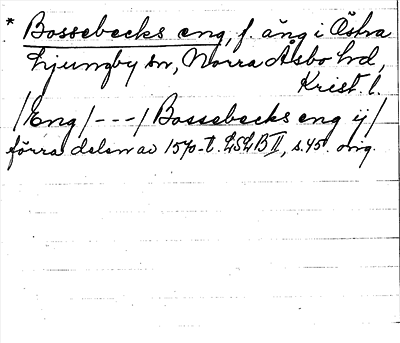 * Bossebecks eng, f. äng i Östra
Ljungby sn, Norra Åsbo hd,
Krist. l.
/Eng/---/Bossebecks eng ij/
förra delen av 1570-t. LSLB II, s. 45. orig.